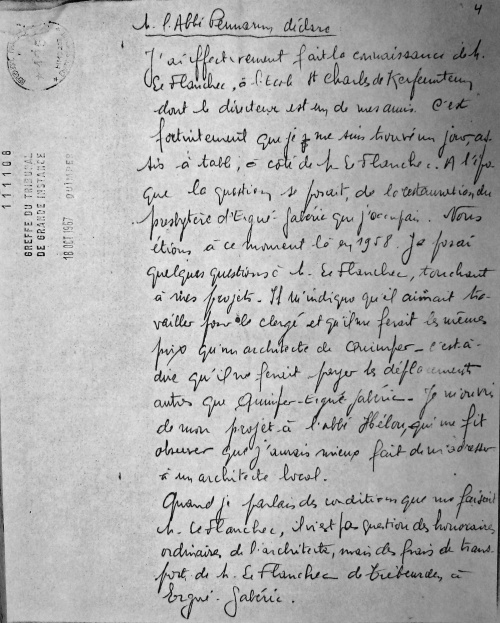 4
M. l'Abbé Pennarun déclare
J'ai effectivement fait la connaissance de M.
Le Flanchec, à l'Ecole St Charles de Kerfeunteun
dont le directeur est un de mes amis. C'est
fortuitement que je me suis trouvé un jour, as-
sis à table, à côté de M. Le Flanchec. A l'épo-
que la question se posait, de la restauration du
presbytère d'Ergué-Gabéric que j'occupais. Nous
étions à ce moment là en 1958. Je posai
quelques questions à M. Le Flanchec, touchant
à mes projets. Il m'indiqua qu'il aimait tra-
vailler pour le clergé et qu'il me ferait les mêmes
prix qu'un architecte de Quimper - c'est-à-
dire qu'il ne ferait payer les déplacements
autres que Quimper-Ergué Gabéric. Je m'ouvris
de mon projet à l'abbé Hélou, qui me fit
observer que j'aurais mieux fait de m'adresser
à un architecte local.
Quand je parlais des conditions que me faisait
M. Le Flanchec, il n'est pas question des honoraires
ordinaires de l'architecte, mais des frais de trans-
port de M. Le Flanchec de Trébeurden à
Ergué-Gabéric.
111108
GREFFE DU TRIBUNAL
DE GRANDE INSTANCE
18 OCT 1967
QUIMPER